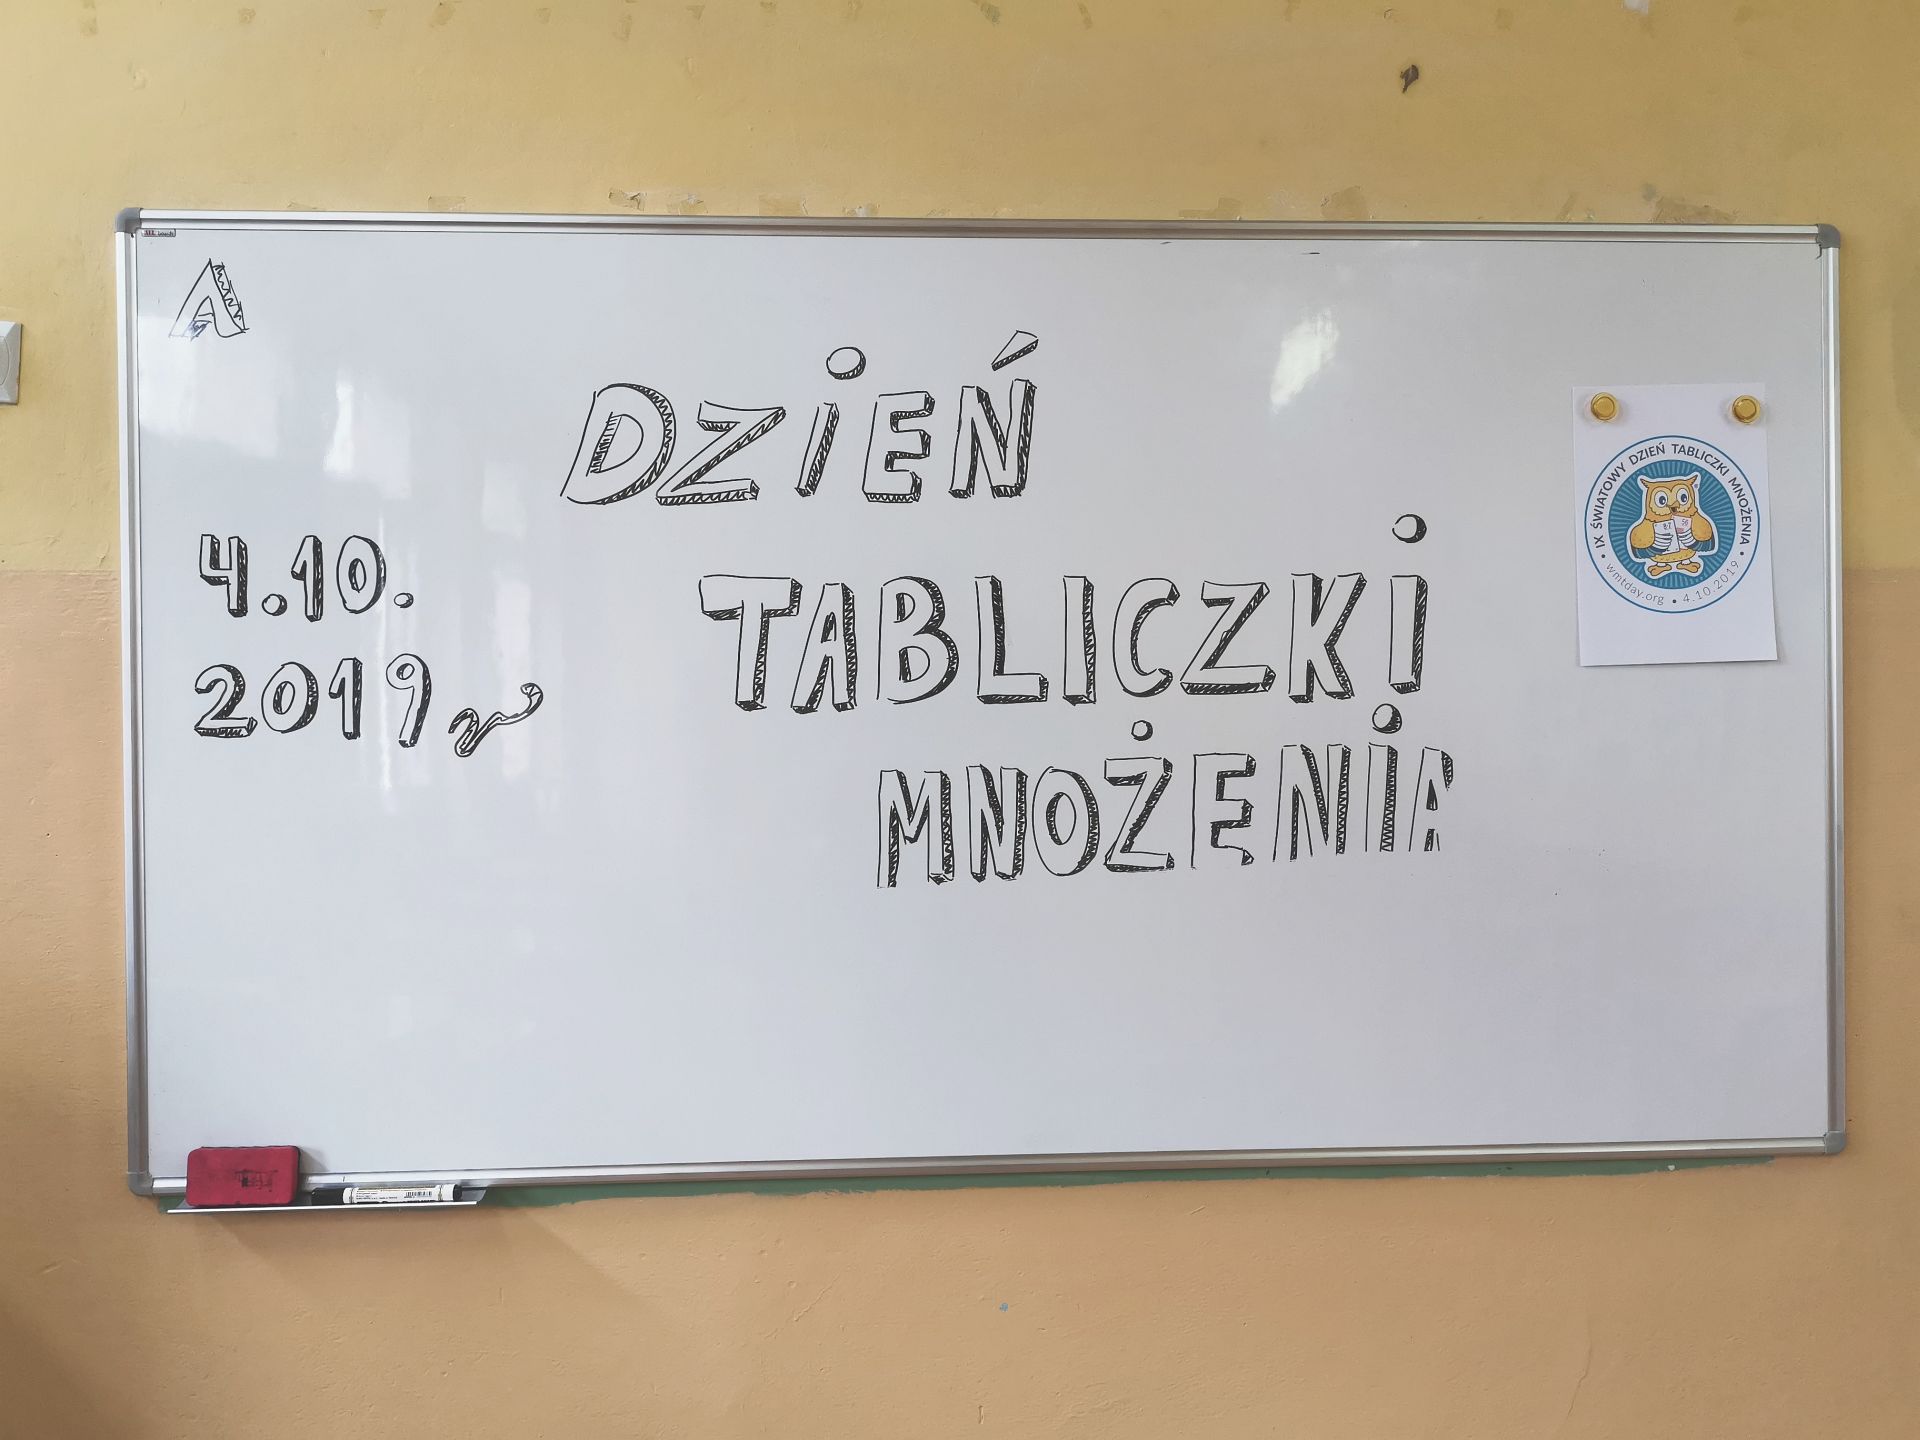 A
DZIEŃ
TABLICZKI
MNOŻENIA
4.10.
2019 r
IX ŚWIATOWY DZIEŃ TABLICZKI MNOŻENIA
wmtday.org • 4.10.2019